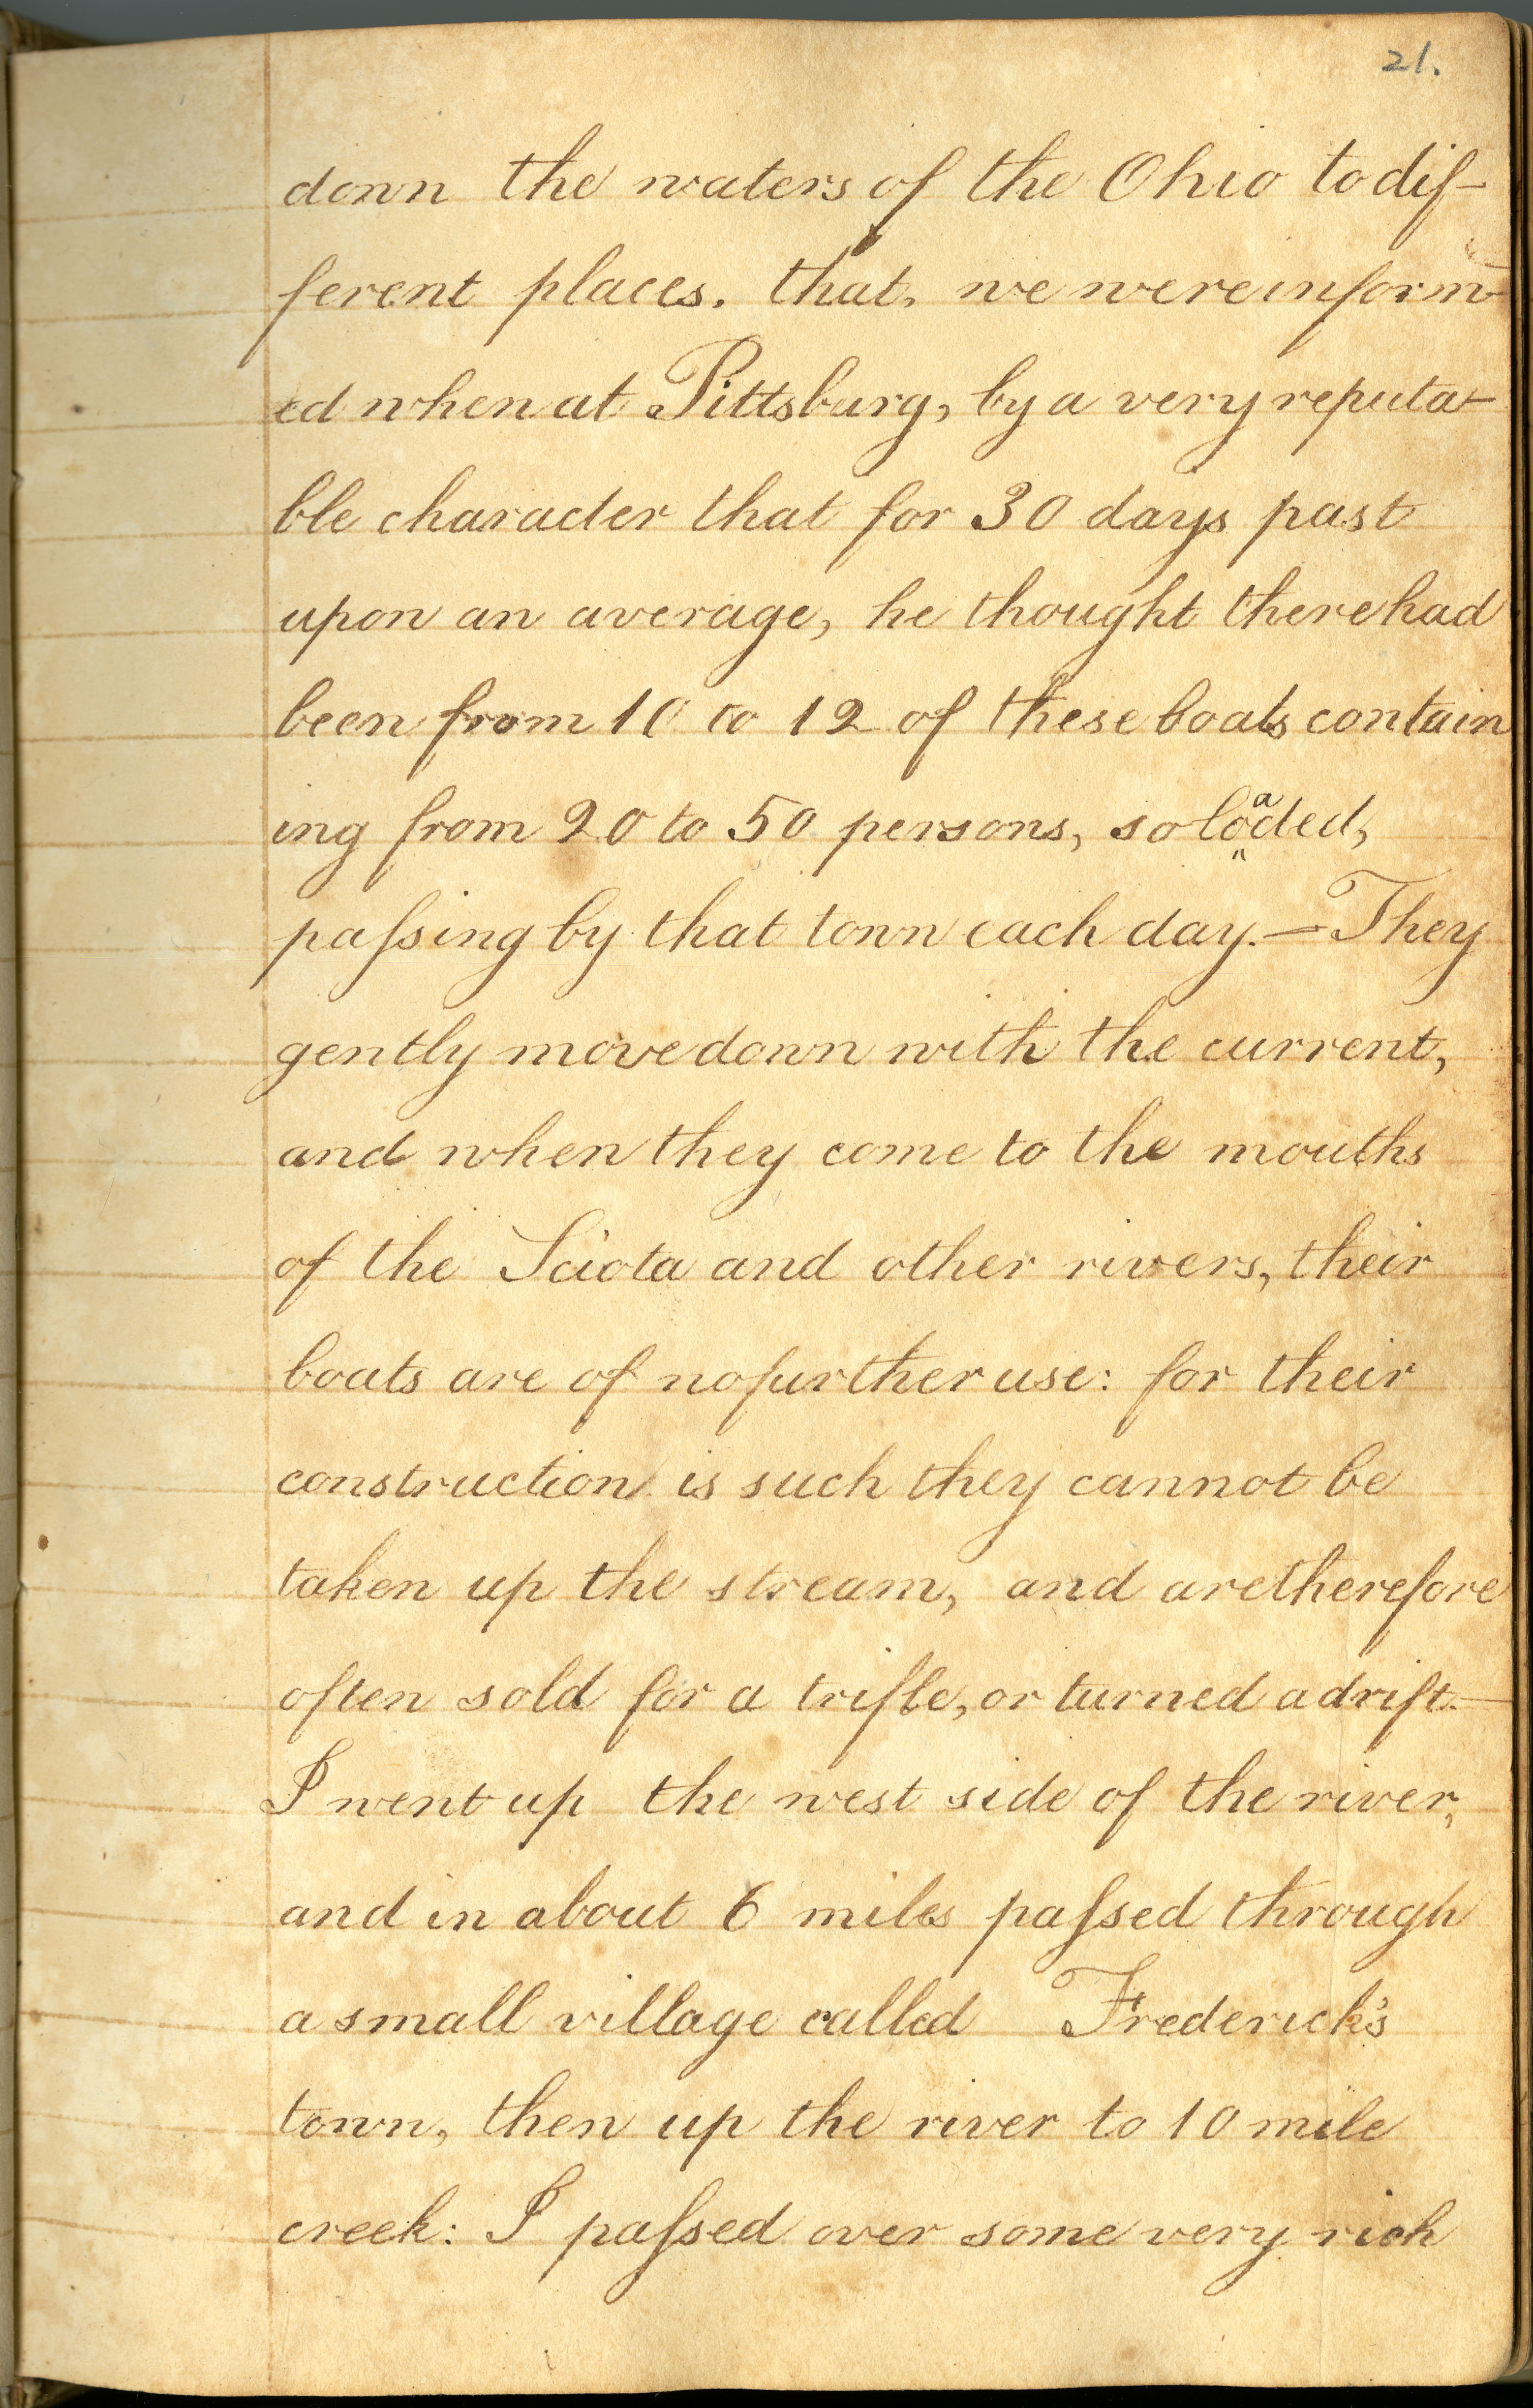 21.
down the waters of the Ohio to dif-
ferent places. that, we were inform-
ed when at Pittsburg, by a very reputa-
ble character that for 30 days past
upon an average, he thought there had
been from 10 to 12 of these boats contain
ing from 20 to 50 persons, so loaded,
paſsing by that town each day. — They
gently move down with the current,
and when they come to the mouths
of the Sciota and other rivers, their
boats are of no further use: for their
construction is such they cannot be
taken up the stream, and are therefore
often sold for a trifle, or turned adrift. —
I went up the west side of the river,
and in about 6 miles paſsed through
a small village called Frederick's
town, then up the river to 10 mile
creek: I paſsed over some very rich